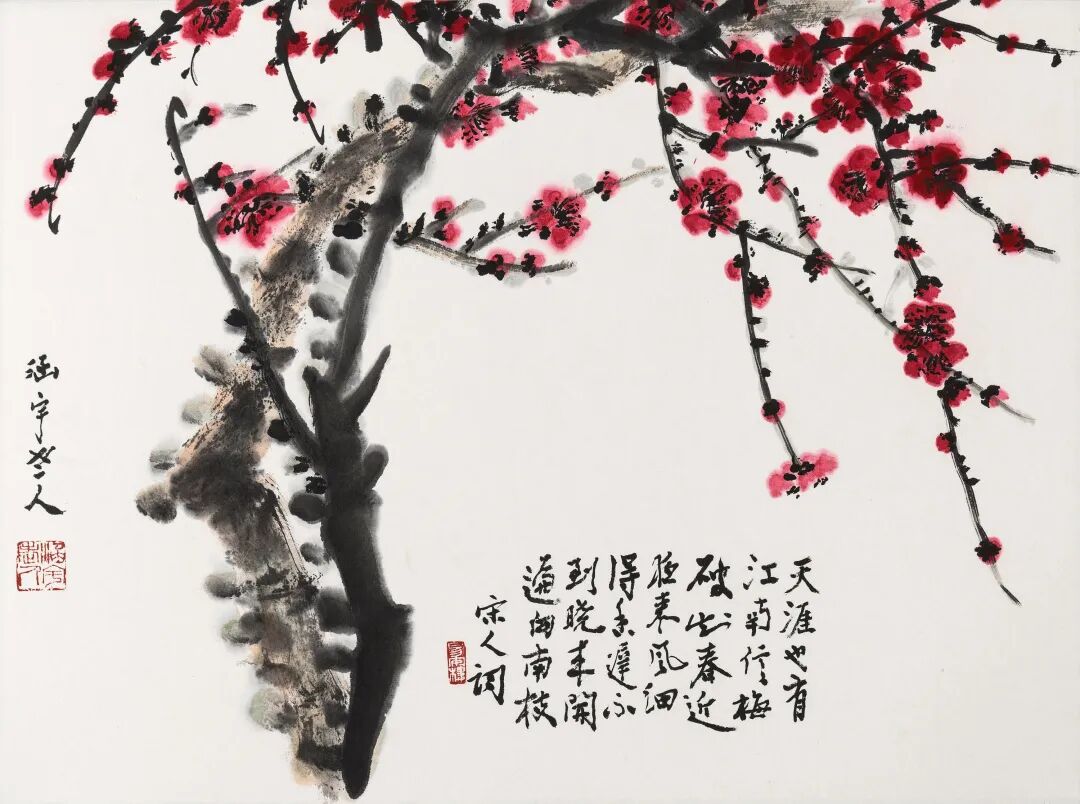 天涯也有
江南信梅
破知春近
夜来风细
得香遲不
到晓来開
遍向南枝
宋人词
涵宇老人